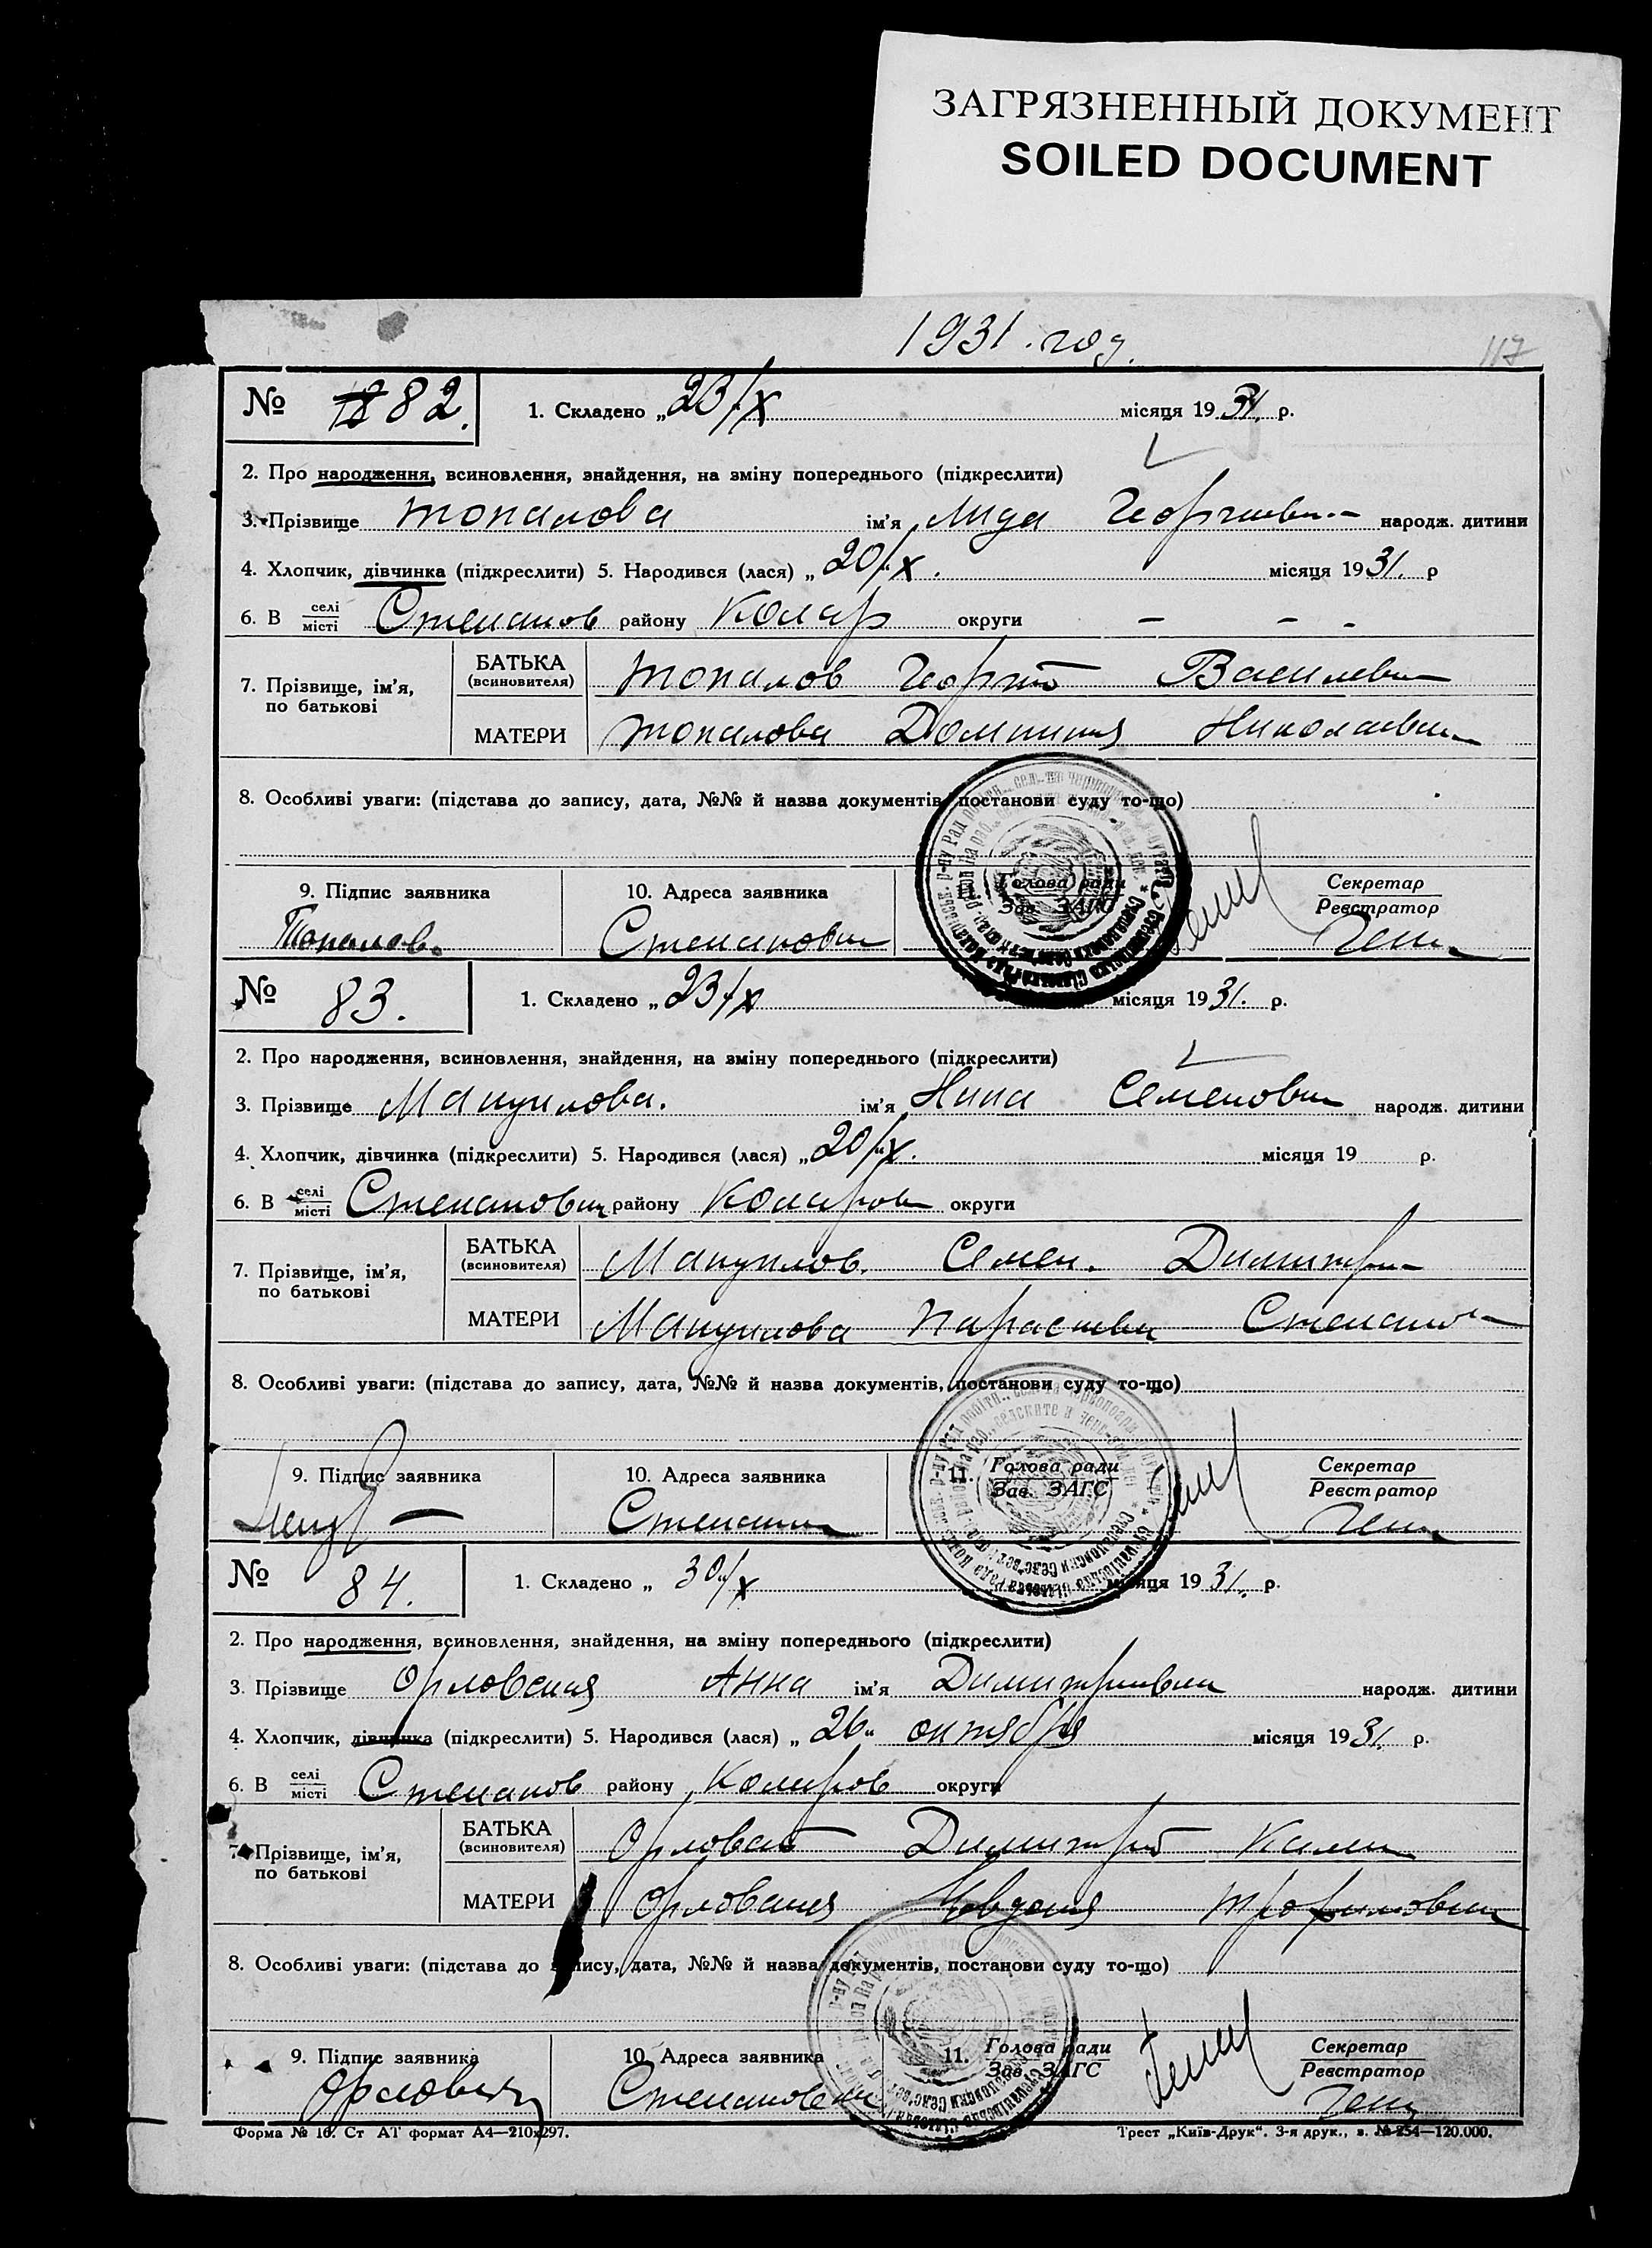 ЗАГРЯЗНЕННЫЙ ДОКУМЕНТ
SOILED DOCUMENT
1931 год.
117
№ 82.
1. Складено „ 23/X місяця 1931. р.
2. Про народження, всиновлення, знайдення, на зміну попереднього (підкреслити)
3. Прізвище Топалова ім'я Лида народж. дитини
4. Хлопчик, дівчинка (підкреслити) 5. Народився (лася) „ 20/X. місяця 1931. р
6. В селі місті Степанов району Колар округи - - -
7. Прізвище, ім'я, по батькові
БАТЬКА (всиновителя) Топалов Георгий
МАТЕРИ Топалова Домникия
8. Особливі уваги: (підстава до запису, дата, №№ й назва документів, постанови суду то-що)
9. Підпис заявника
10. Адреса заявника
11. Голова ради Зав. ЗАГС
Секретар Реєстратор
Топалов
№ 83.
1. Складено „ 23/X місяця 1931. р.
2. Про народження, всиновлення, знайдення, на зміну попереднього (підкреслити)
3. Прізвище Мануилова. ім'я Нина народж. дитини
4. Хлопчик, дівчинка (підкреслити) 5. Народився (лася) „ 20/X. місяця 19 р.
6. В селі місті району округи
7. Прізвище, ім'я, по батькові
БАТЬКА (всиновителя) Мануилов. Семен.
МАТЕРИ Мануилова Параскева
8. Особливі уваги: (підстава до запису, дата, №№ й назва документів, постанови суду то-що)
9. Підпис заявника
10. Адреса заявника
11. Голова ради Зав. ЗАГС
Секретар Реєстратор
№ 84.
1. Складено „ 30/X місяця 1931. р.
2. Про народження, всиновлення, знайдення, на зміну попереднього (підкреслити)
3. Прізвище Орловская Анна ім'я народж. дитини
4. Хлопчик, дівчинка (підкреслити) 5. Народився (лася) „ 26 “ октября місяця 1931. р.
6. В селі місті Степанов району Коларов округи
7. Прізвище, ім'я, по батькові
БАТЬКА (всиновителя) Димитрий
МАТЕРИ Орловская
8. Особливі уваги: (підстава до запису, дата, №№ й назва документів, постанови суду то-що)
9. Підпис заявника
10. Адреса заявника
11. Голова ради Зав. ЗАГС
Секретар Реєстратор
Форма № 16. Ст АТ формат А4—210x297.
Трест „Київ-Друк“. 3-я друк., з. № 254—120.000.